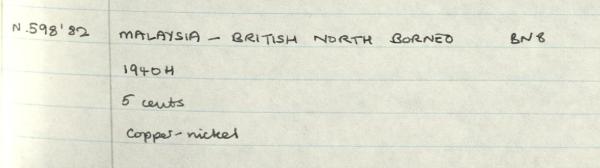 N.598'82 MALAYSIA - BRITISH NORTH BORNEO BN8
1940H
5 cents
Copper-nickel